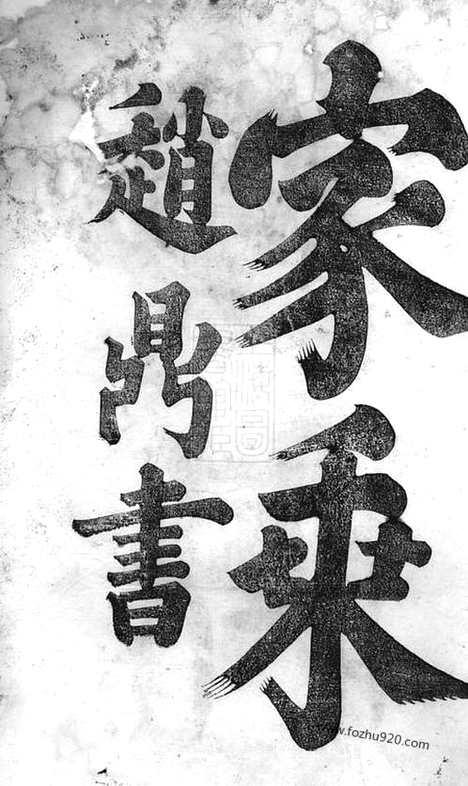 家乘
趙鼎書
www.fozhu920.com